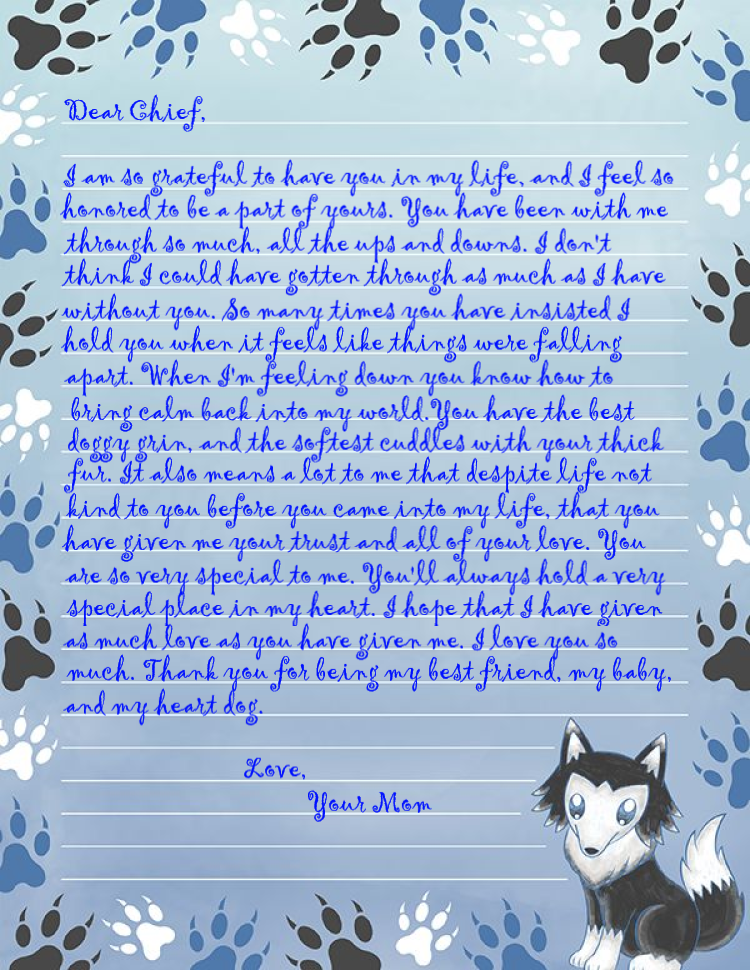 Dear Chief,
I am so grateful to have you in my life, and I feel so
honored to be a part of yours. You have been with me
through so much, all the ups and downs. I don't
think I could have gotten through as much as I have
without you. So many times you have insisted I
hold you when it feels like things were falling
apart. When I'm feeling down you know how to
bring calm back into my world.You have the best
doggy grin, and the softest cuddles with your thick
fur. It also means a lot to me that despite life not
kind to you before you came into my life, that you
have given me your trust and all of your love. You
are so very special to me. You'll always hold a very
special place in my heart. I hope that I have given
as much love as you have given me. I love you so
much. Thank you for being my best friend, my baby,
and my heart dog.
Love,
Your Mom